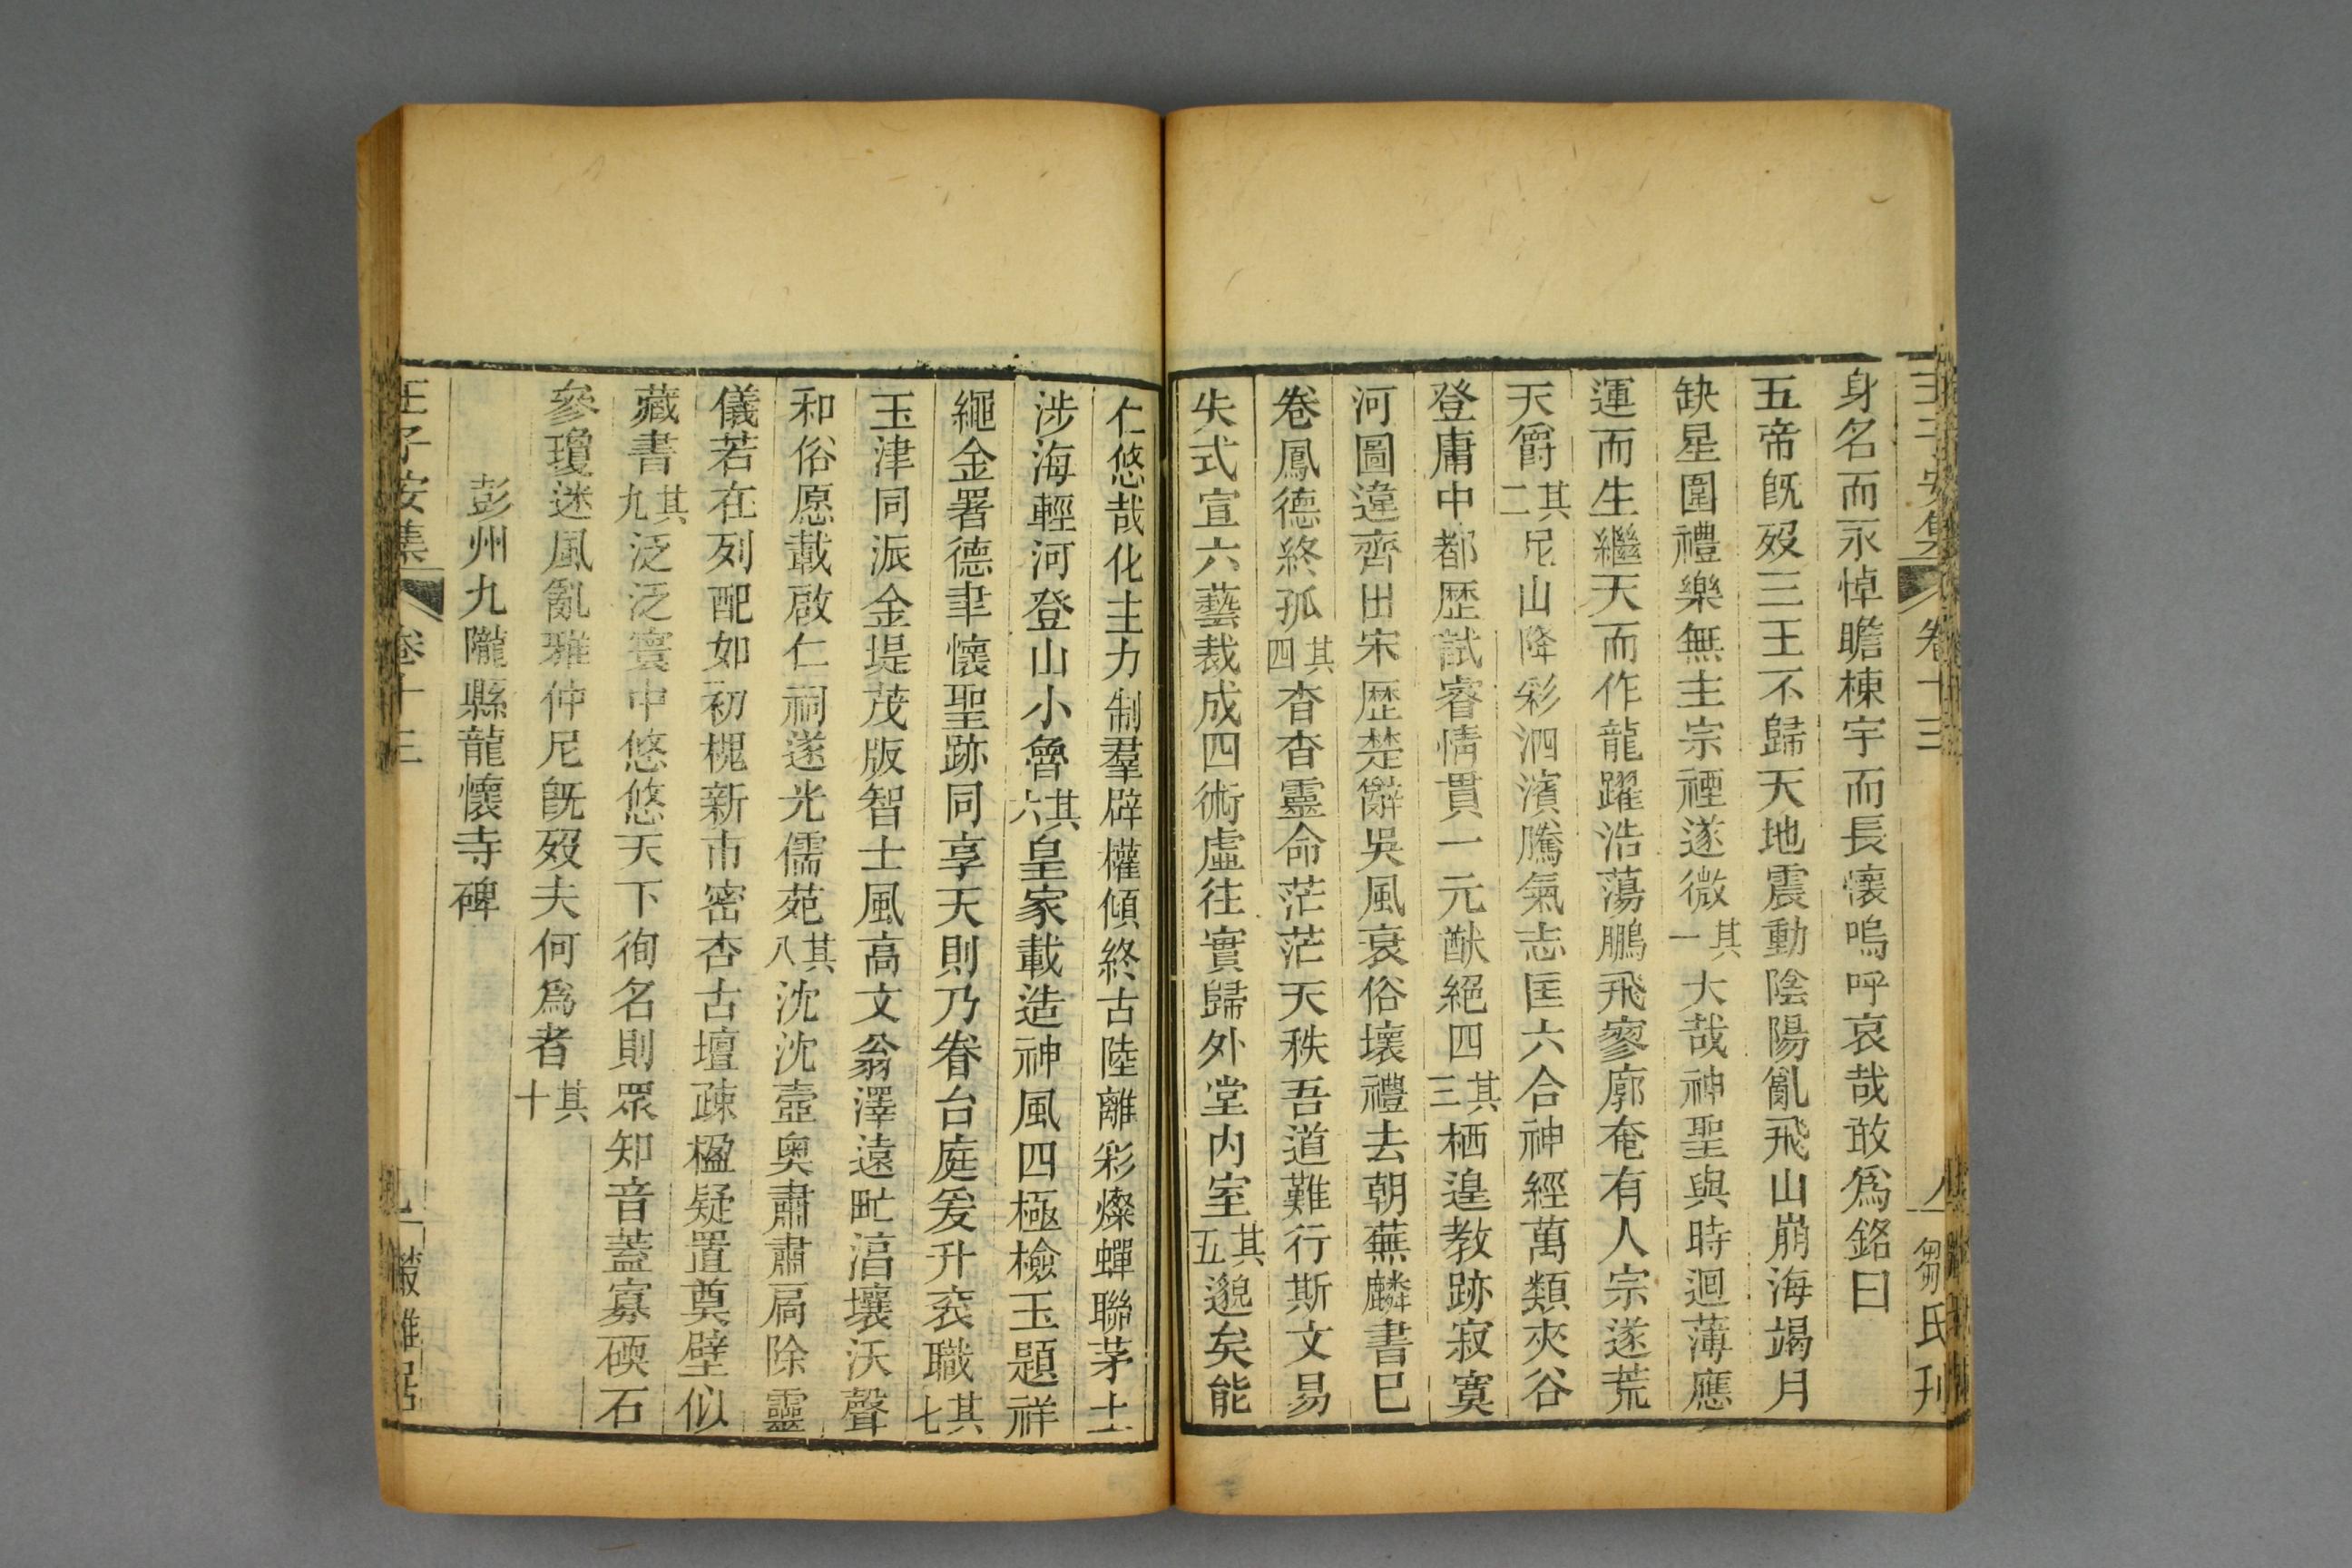 王子安集 卷十三 八 鄒氏刊
身名而永悼瞻棟宇而長懷嗚呼哀哉敢爲銘曰
五帝旣歿三王不歸天地震動陰陽亂飛山崩海竭月
缺星圍禮樂無主宗禋遂微其一大哉神聖與時迴薄應
運而生繼天而作龍躍浩蕩鵬飛寥廓奄有人宗遂荒
天爵其二尼山降彩泗濱騰氣志匡六合神經萬類夾谷
登庸中都歷試睿情貫一元猷絕四其三栖遑教跡寂寞
河圖違齊出宋歷楚辭吳風衰俗壞禮去朝蕪麟書已
卷鳳德終孤其四杳杳靈命茫茫天秩吾道難行斯文易
失式宣六藝裁成四術虛往實歸外堂內室其五邈矣能
仁悠哉化主力制羣辟權傾終古陸離彩燦蟬聯茅土
涉海輕河登山小魯其六皇家載造神風四極檢玉題祥
繩金署德聿懷聖跡同享天則乃眷台庭爰升袞職其七
玉津同派金堤茂版智士風高文翁澤遠甿滔壤沃聲
和俗愿載啟仁祠遂光儒苑其八沈沈壼奥肅肅扃除靈
儀若在列配如初槐新市密杏古壇疎楹疑置奠壁似
藏書其九泛泛寰中悠悠天下徇名則眾知音蓋寡碝石
參瓊迷風亂雅仲尼旣歿夫何爲者其十
彭州九隴縣龍懷寺碑
王子安集 卷十三 九 叢雅居